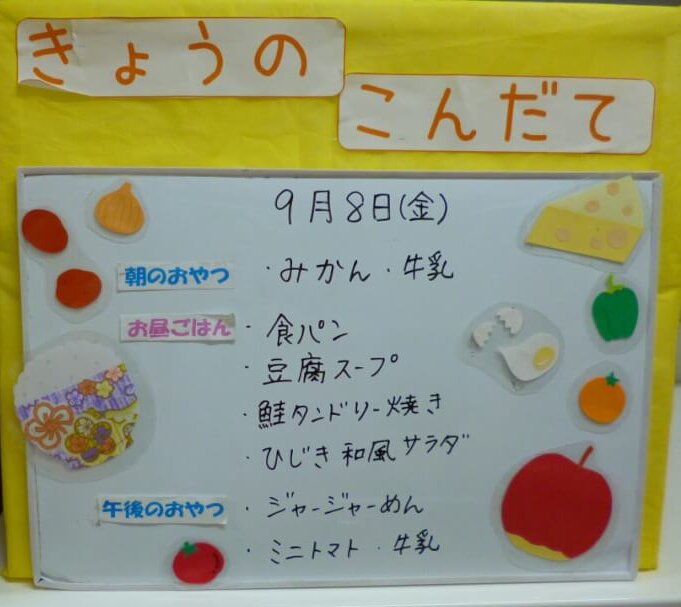 きょうの
こんだて
9月8日(金)
朝のおやつ ・みかん・牛乳
お昼ごはん ・食パン
・豆腐スープ
・鮭タンドリー焼き
・ひじき和風サラダ
午後のおやつ ・ジャージャーめん
・ミニトマト・牛乳